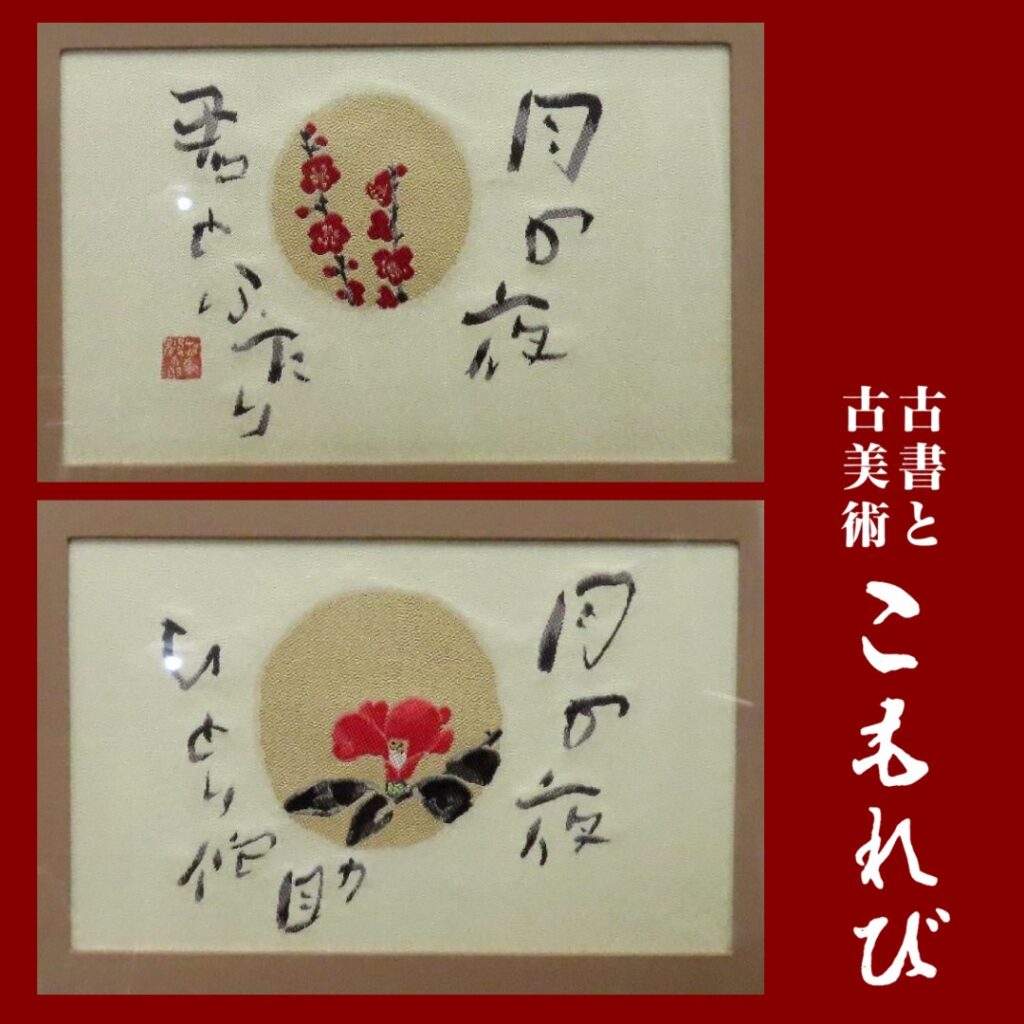 月の夜
君とふたり
月の夜
ひとり侘助
古書と
古美術
こもれび